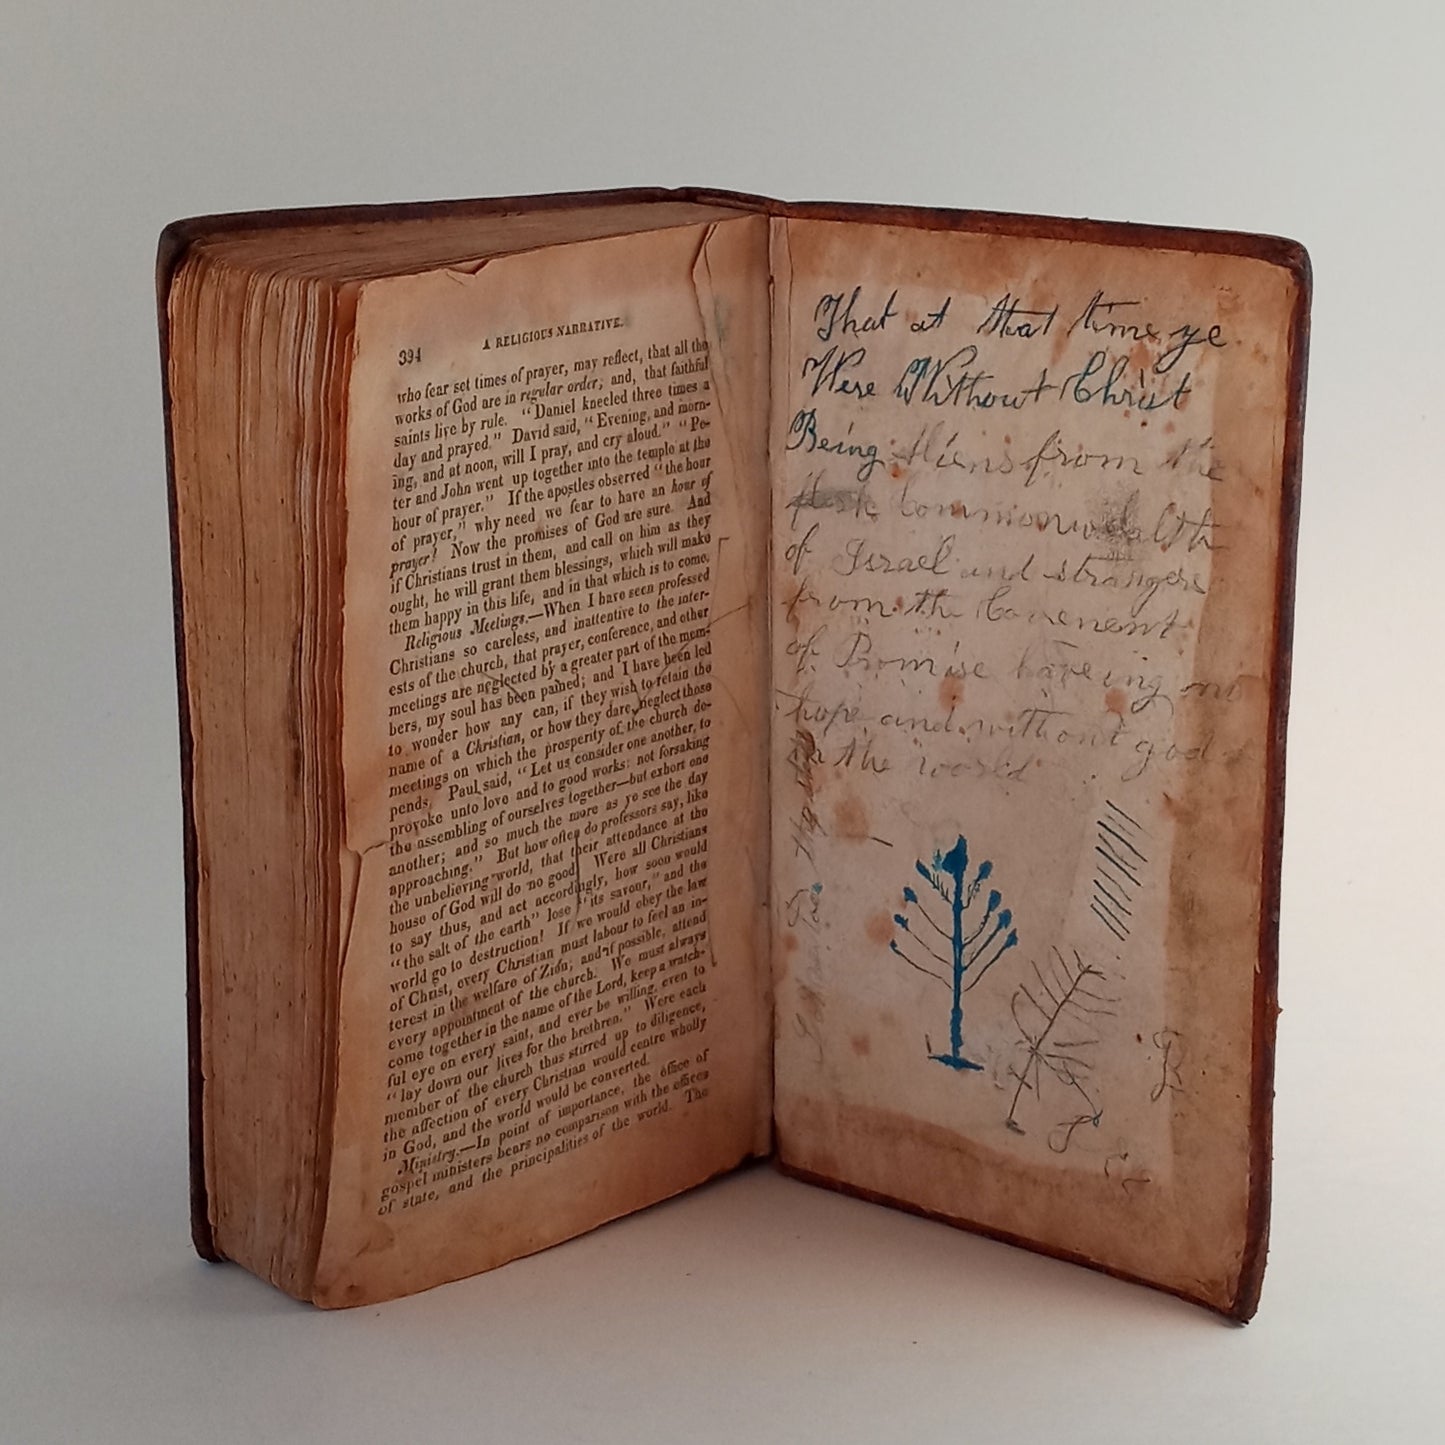 394
A RELIGIOUS NARRATIVE.
who fear set times of prayer, may reflect, that all the
works of God are in regular order; and, that faithful
saints live by rule. "Daniel kneeled three times a
day and prayed." David said, "Evening, and morn-
ing, and at noon, will I pray, and cry aloud." "Pe-
ter and John went up together into the temple at the
hour of prayer." If the apostles observed "the hour
of prayer," why need we fear to have an hour of
prayer? Now the promises of God are sure. And
if Christians trust in them, and call on him as they
ought, he will grant them blessings, which will make
them happy in this life, and in that which is to come.
Religious Meetings.—When I have seen professed
Christians so careless, and inattentive to the inter-
ests of the church, that prayer, conference, and other
meetings are neglected by a greater part of the mem-
bers, my soul has been pained; and I have been led
to wonder how any can, if they wish to retain the
name of a Christian, or how they dare, neglect those
meetings on which the prosperity of the church de-
pends. Paul said, "Let us consider one another, to
provoke unto love and to good works: not forsaking
the assembling of ourselves together—but exhort one
another; and so much the more as ye see the day
approaching." But how often do professors say, like
the unbelieving world, that their attendance at the
house of God will do no good! Were all Christians
to say thus, and act accordingly, how soon would
"the salt of the earth" lose "its savour," and the
world go to destruction! If we would obey the law
of Christ, every Christian must labour to feel an in-
terest in the welfare of Zion; and if possible, attend
every appointment of the church. We must always
come together in the name of the Lord, keep a watch-
ful eye on every saint, and ever be willing, even to
"lay down our lives for the brethren." Were each
member of the church thus stirred up to diligence,
the affection of every Christian would centre wholly
in God, and the world would be converted.
Ministry.—In point of importance, the office of
gospel ministers bears no comparison with the offices
of state, and the principalities of the world. The
That at that time ye
Were Without Christ
Being Aliens from the
Commonwealth
of Israel and strangers
from the Covenent
of Promise haveing no
hope and without god
in the world